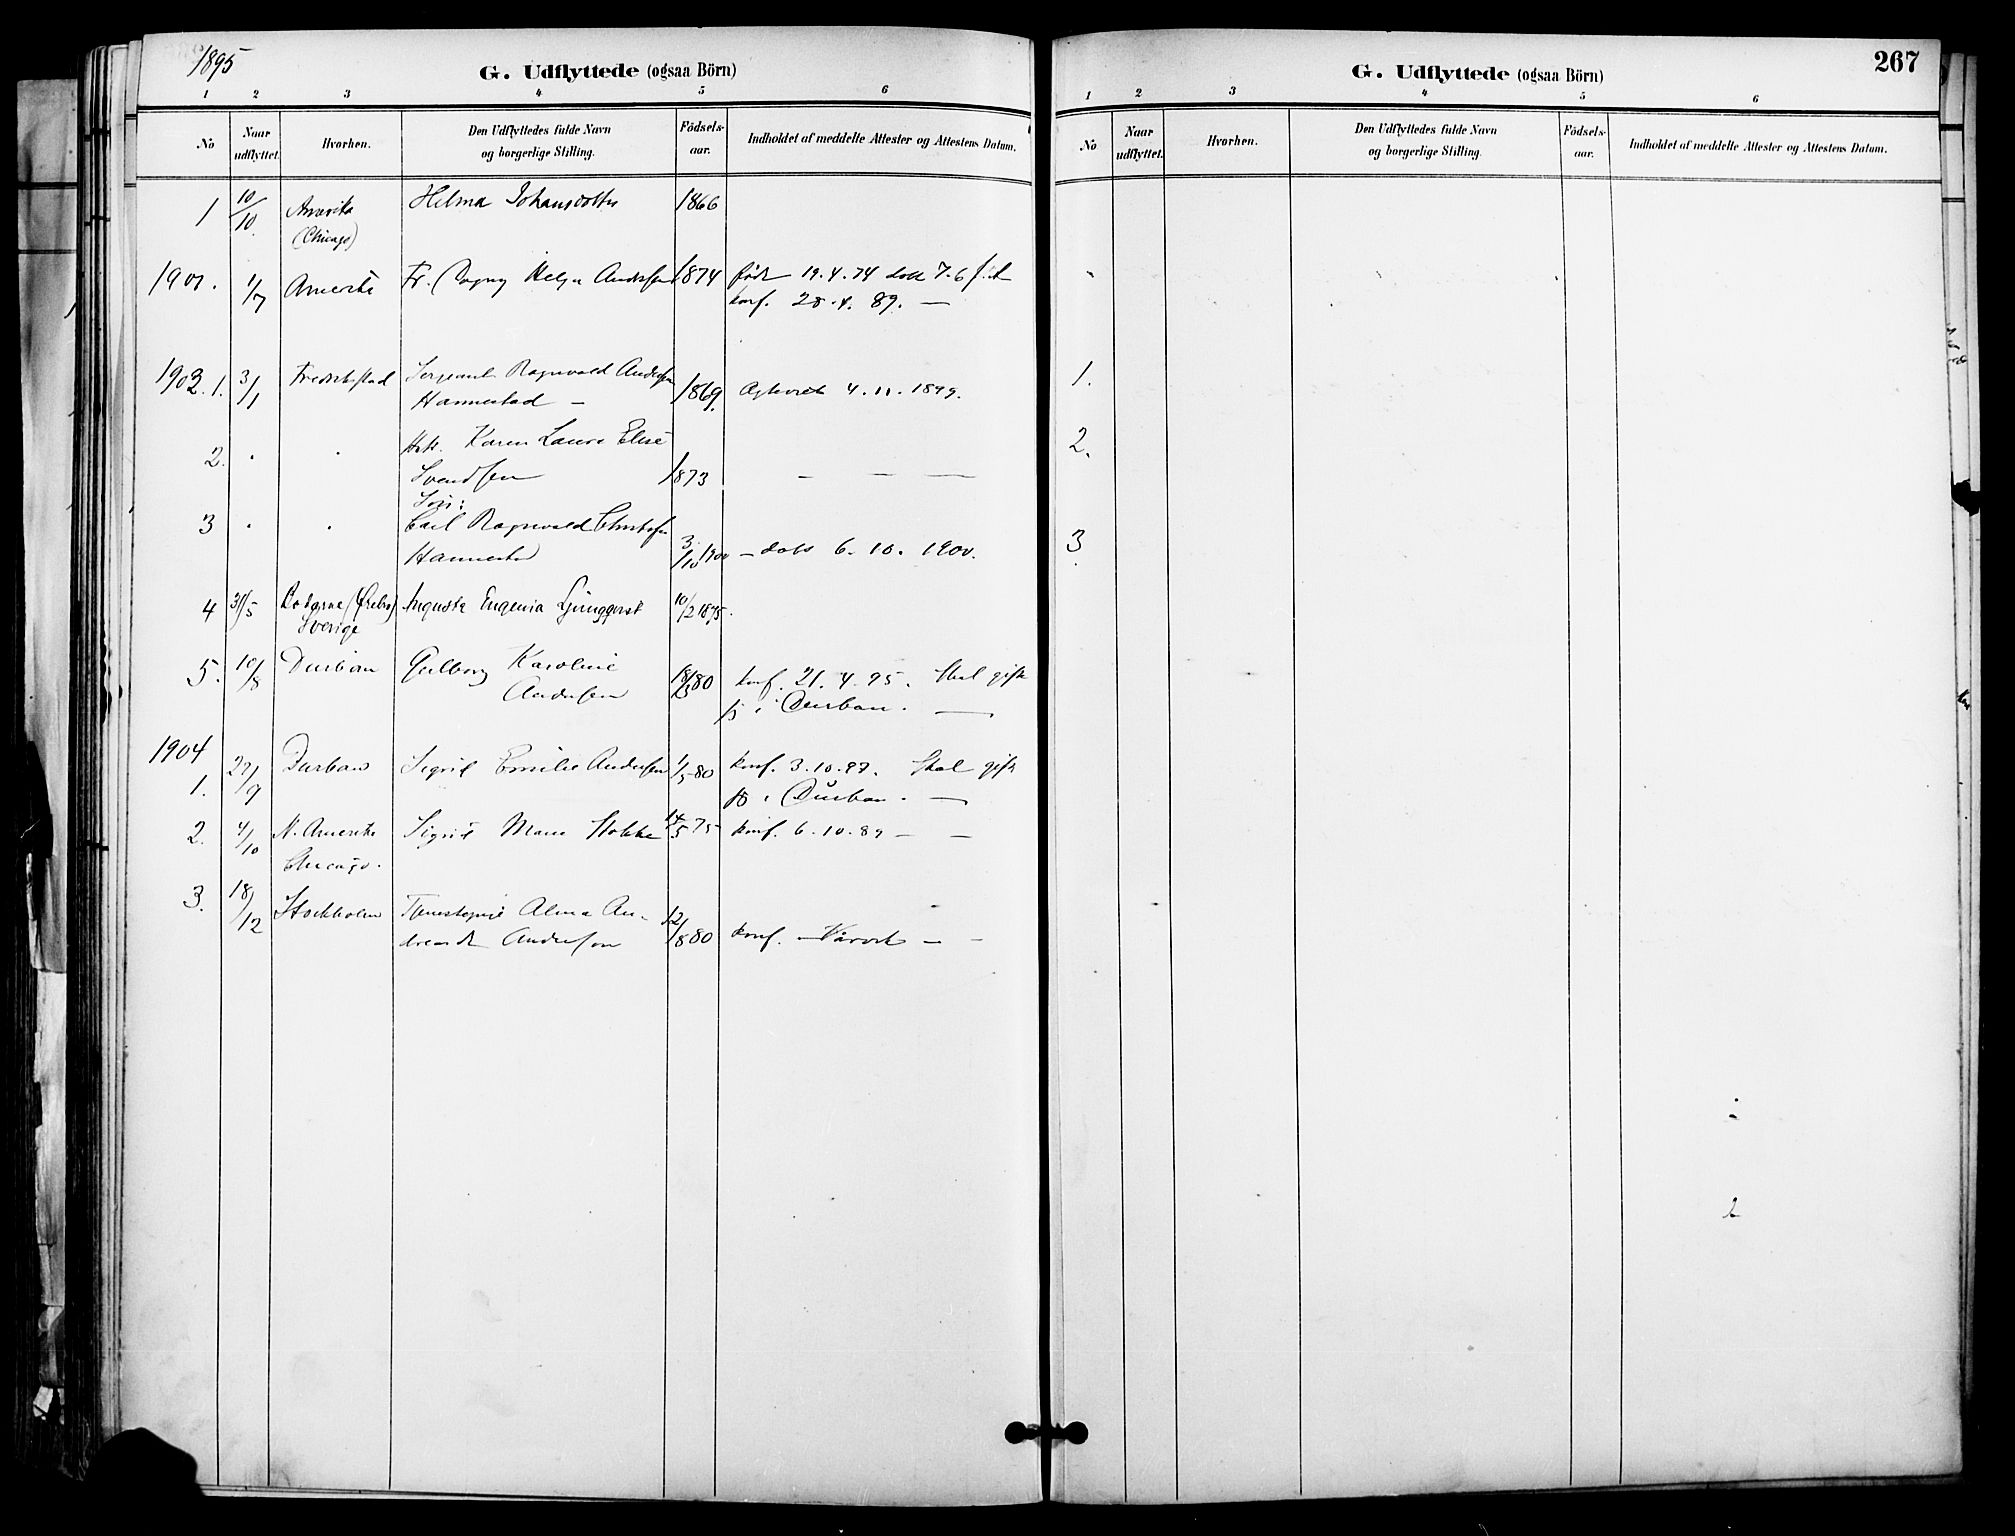 1895
G. Udflyttede (ogsaa Börn)
1 2 3 4 5 6
No
Naar udflyttet.
Hvorhen.
Den Udflyttedes fulde Navn og borgerlige Stilling.
Födsels-aar.
Indholdet af meddelte Attester og Attestens Datum.
1 10/10 Amerika Helma Johansdotter 1866
(Chicago)
1901. 1/7 Amerika Fr. Dagny Helga Andersen 1874 født 19.4.74 døbt 7.6
konf. 28.4.89. —
1903 1. 3/1 Fredrikstad Sergeant Ragnvald Andersen
Hannestad — 1869. 4.11.1899.
2. " " Karen Laura Elise
Svendsen 1873 — — —
Søn:
3 " " Carl Ragnvald Christofer
Hannestad 3/10 1900 – døbt 6.10.1900.
4 31/5 (Ørebro) Augusta Eugenia Ljunggvist 10/2 1875.
Sverige
5. 10/8 Durban Gulborg Karoline
Andersen 18/3 80 konf. 21.4.95. Skal gifte
i Durban. —
1904
1. 27/9 Durban Sigrid Emilie Andersen 1/5 80 konf. 3.10.97. Skal gifte
i Durban. —
2. 4/10 N. Amerika Sigrid Marie Stokke 14/5 75 konf. 6.10.89 — —
Chicago.
3. 18/12 Stockholm Tjenestepige Alma An-
Anderson 12/8 80 konf. — —
267
G. Udflyttede (ogsaa Börn)
1 2 3 4 5 6
No
Naar udflyttet.
Hvorhen.
Den Udflyttedes fulde Navn og borgerlige Stilling.
Födsels-aar.
Indholdet af meddelte Attester og Attestens Datum.
1.
2.
3
2